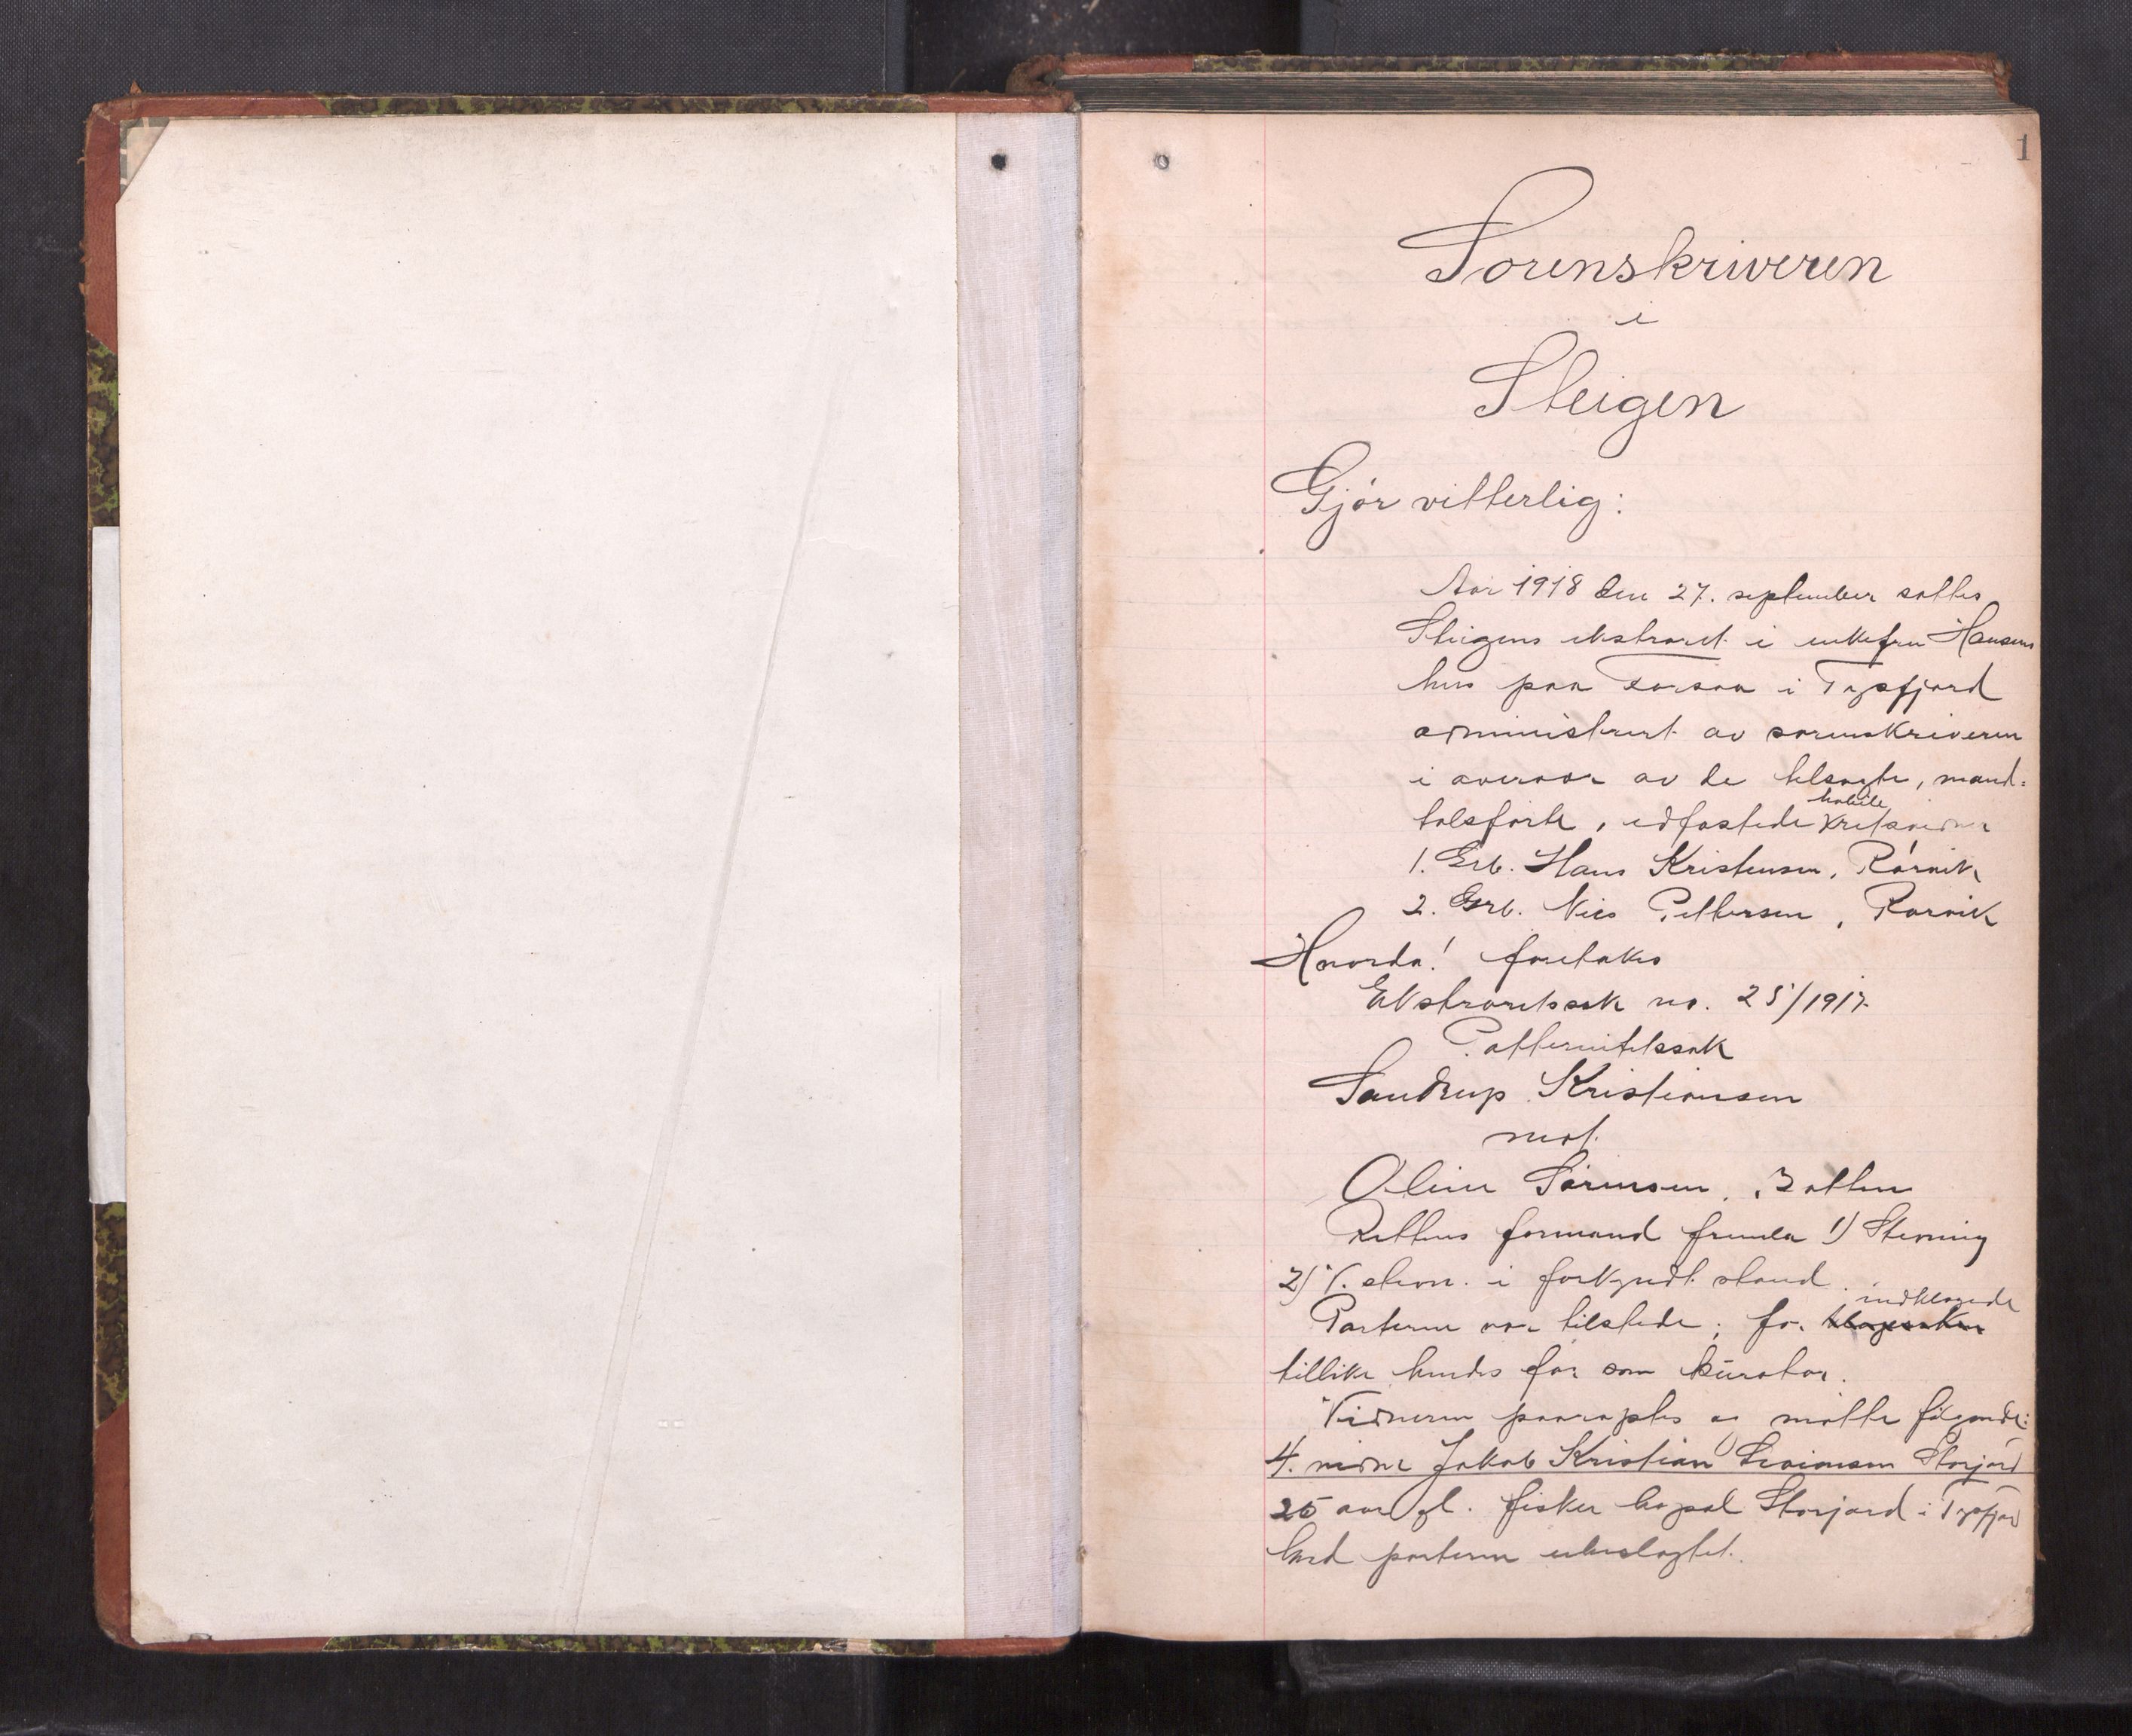 1
Sorenskriveren
i
Steigen
Gjør vitterlig:
Aar 1918 den 27. september sattes
Steigens ekstraret i enkefru Hansens
hus paa Korsnes i Tysfjord
administrert av sorenskriveren
i overvær av de tilsagte, mand-
talsførte, edfæstede habile retsvidner
1. Grb. Hans Kristensen, Rørvik
2. Grb. Nils Pettersen, Rørvik
Hvorda! foretokes
Ekstraretssak no. 25/1917
Patternitetssak
Sandrup Kristiansen
mot
Oline Sørensen, Botten
Rettens formand fremla 1) Stevning
2) V. stevn. i forkyndt stand.
Parterne var tilstede; for indklagede
tillike hendes far som kurator.
Vidnerne paaroptes og møtte følgende:
4. vidne Jakob Kristian Sivionsen Storjord
25 aar gl. fisker bopæl Storjord i Tysfjord
Med parterne ubeslægtet.